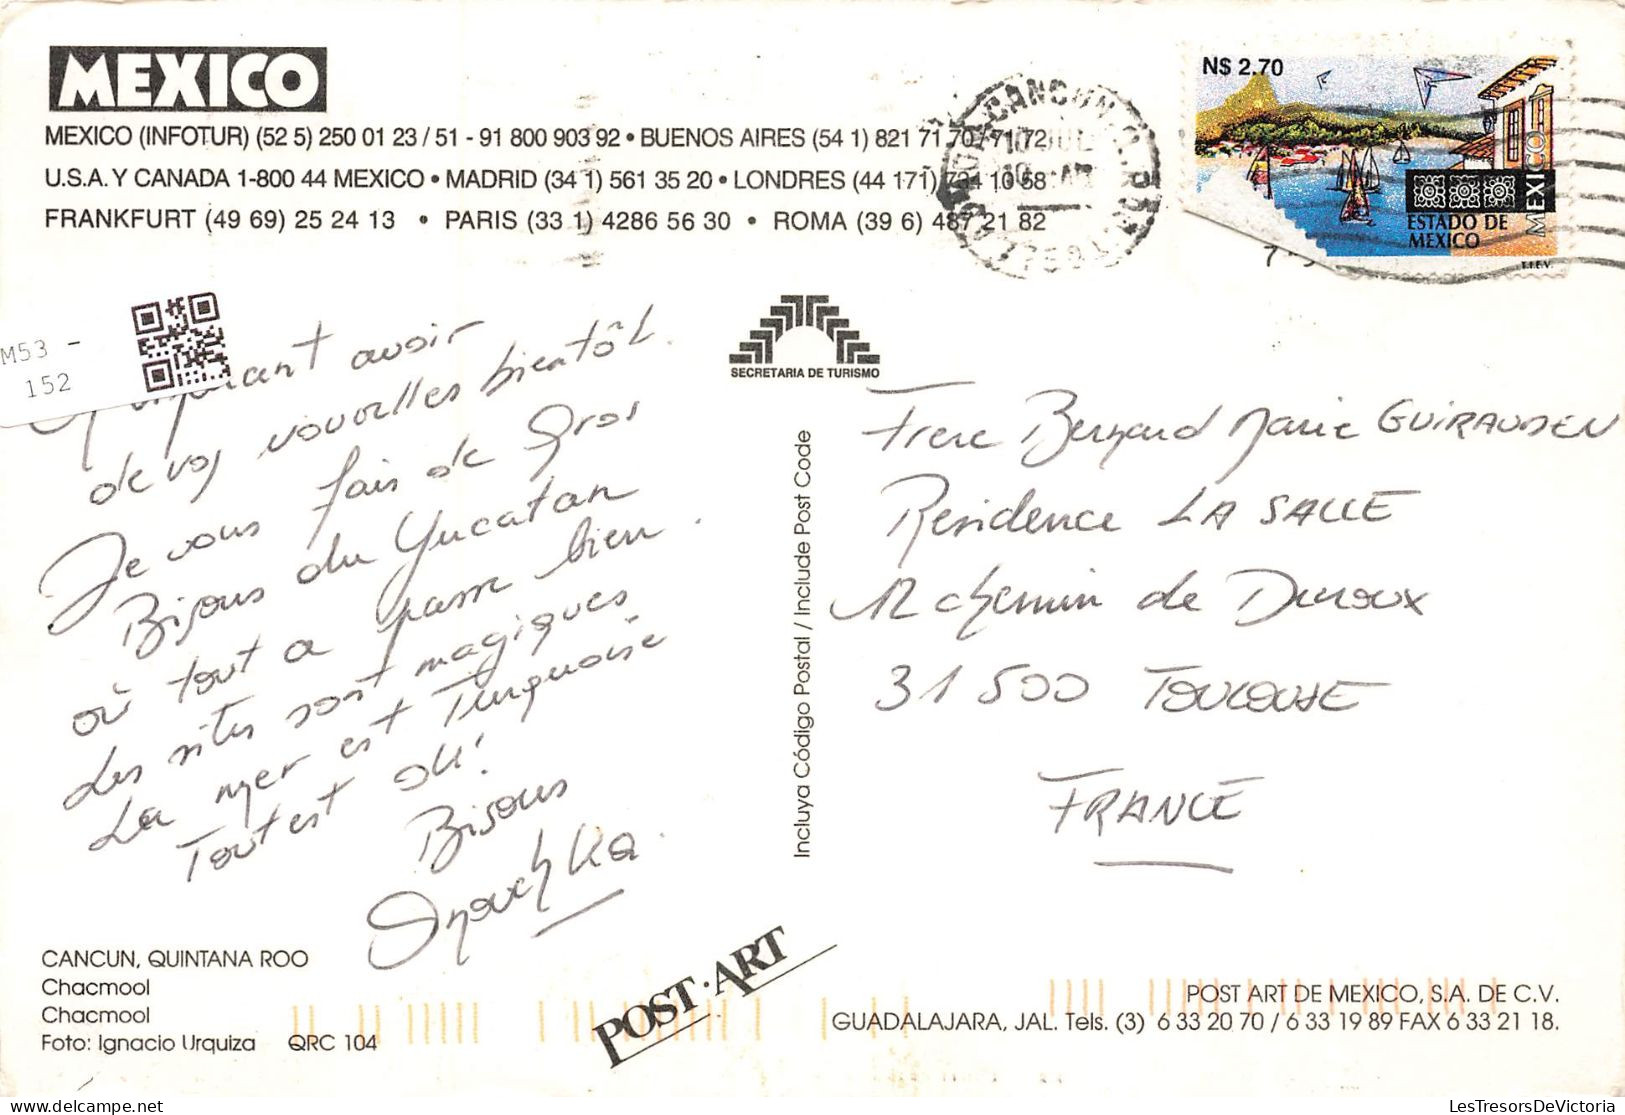 MEXICO
MEXICO (INFOTUR) (52 5) 250 01 23 / 51 - 91 800 903 92 • BUENOS AIRES (54 1) 821 71 70 / 71 72
U.S.A. Y CANADA 1-800 44 MEXICO • MADRID (34 1) 561 35 20 • LONDRES (44 171) 734 10 58
FRANKFURT (49 69) 25 24 13 • PARIS (33 1) 4286 56 30 • ROMA (39 6) 487 21 82
CANCUN, Q. ROO
10 JUL
N$ 2.70
MEXICO
ESTADO DE
MEXICO
T.I.E.V.
M53 -
152
avoir
de vos nouvelles bientôt.
Je vous fais de Gros
Bisous du Yucatan
où tout a passé bien.
Les sites sont magiques
La mer est Turquoise
Tout est ok!
Bisous
SECRETARIA DE TURISMO
Incluya Código Postal / Include Post Code
Frere Bernard Marie GUIRAUDEN
Residence LA SALLE
12 chemin de Duroux
31 500 TOULOUSE
FRANCE
CANCUN, QUINTANA ROO
Chacmool
Chacmool
Foto: Ignacio Urquiza QRC 104
POST·ART
POST ART DE MEXICO, S.A. DE C.V.
GUADALAJARA, JAL. Tels. (3) 6 33 20 70 / 6 33 19 89 FAX 6 33 21 18.
LesTresorsDeVictoria